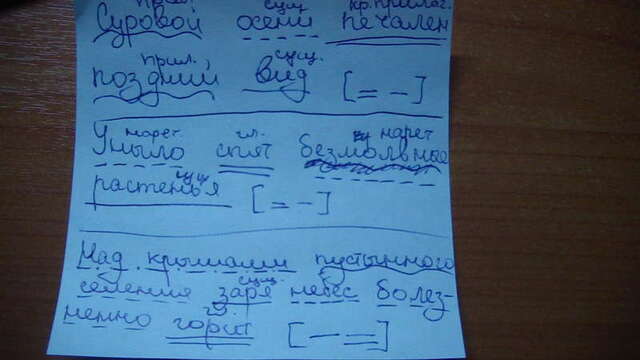 прил. сущ. кр.прилаг.
Суровой осени печален
прил. сущ.
поздний вид [= –]
нареч. гл. нареч
Уныло спят безмолвные
сущ
растенья [= –]
Над крышами пустынного
сущ.
селения заря небес болез-
гл
ненно горит [– =]